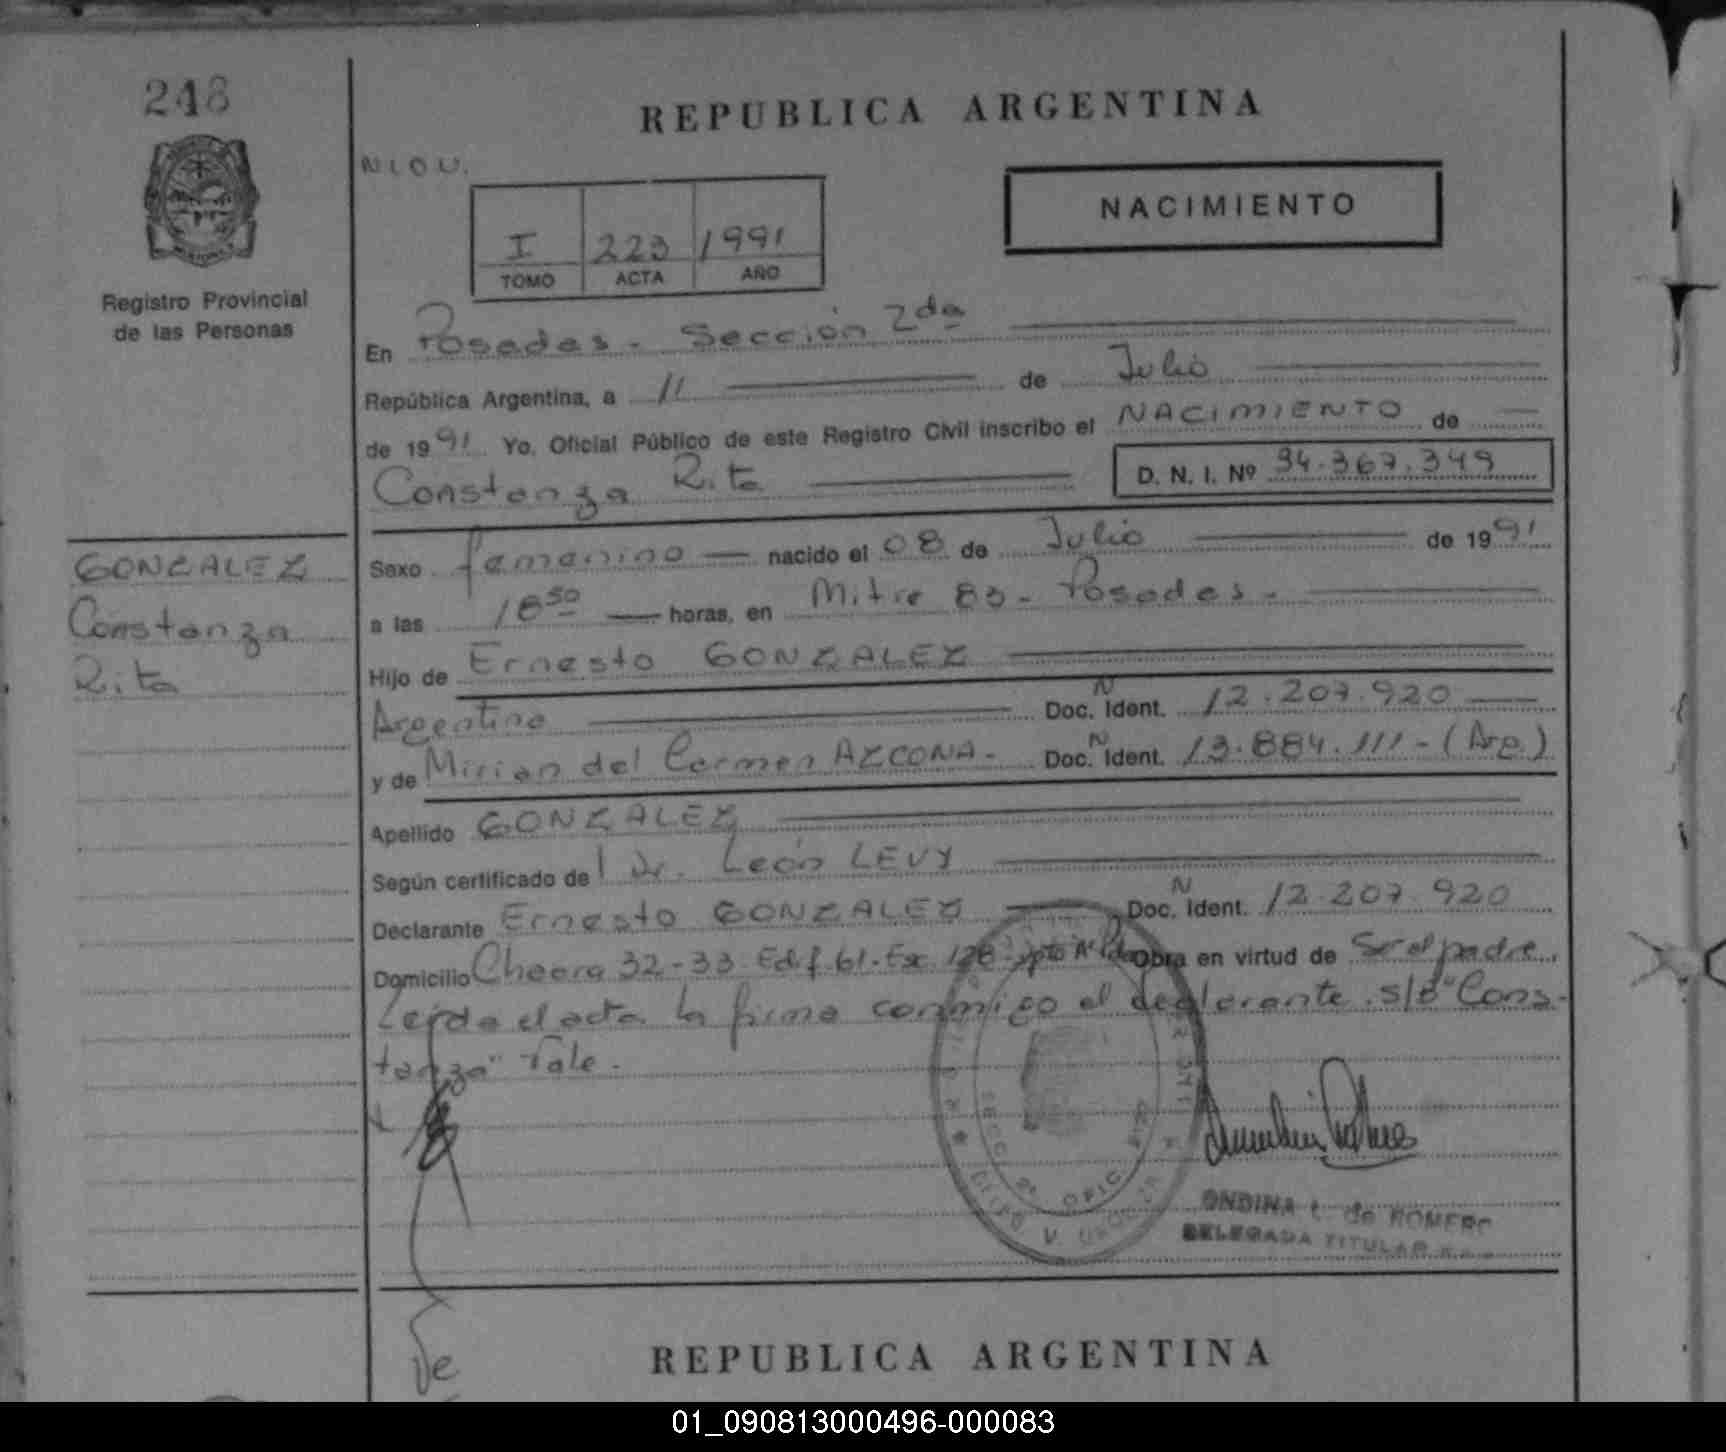 248
REPUBLICA ARGENTINA
NACIMIENTO
I 223 1991
TOMO ACTA AÑO
Registro Provincial
de las Personas
En Posadas - Sección 2da
República Argentina, a 11 de Julio
de 1991 Yo, Oficial Público de este Registro Civil inscribo el NACIMIENTO de
Constanza Rita D. N. I. Nº 34.367.349
GONZALEZ
Constanza
Rita
Sexo femenino nacido el 08 de Julio de 1991
a las 18 50 horas, en Mitre 83 - Posadas -
Hijo de Ernesto GONZALEZ
Argentino Doc. N Ident. 12.207.920
y de Mirian del Carmen AZCONA - Doc. N Ident. 13.884.111 - (Arg.)
Apellido GONZALEZ
Según certificado del Dr. León LEVY
Declarante Ernesto GONZALEZ Doc. N Ident. 12.207.920
Domicilio 32-33 Edif. 61 - Esc. Obra en virtud de Ser el padre.
Leída el acta la firma conmigo el declarante. s/b "Cons-
tanza" Vale.
SECC 2ª OFIC
ONDINA L. de ROMERO
DELEGADA TITULAR
REPUBLICA ARGENTINA
01_090813000496-000083